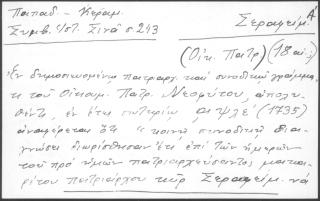 Παπαδ - Κεραμ.
Συμβ. ἱστ. Σινᾶ σ 243
Σεραφείμ Α
(Οἰκ. Πατρ) (18 αἰ.)
Ἐν δημοσιευομένῳ πατριαρχ. καὶ συνοδικῷ γράμμα-
τι τοῦ Οἰκουμ. Πατρ. Νεοφύτου, ἀπολυ-
θέντι ἐν ἔτει σωτηρίῳ αψλε (1735)
ἀναφέρεται ὅτι "κοινῇ συνοδικῇ δια-
γνώσει διωρίσθησαν ἔτι ἐπὶ τῶν ἡμερῶν
τοῦ πρὸ ἡμῶν πατριαρχεύσαντος μακα-
ρίτου πατριάρχου κὺρ Σεραφεὶμ νὰ